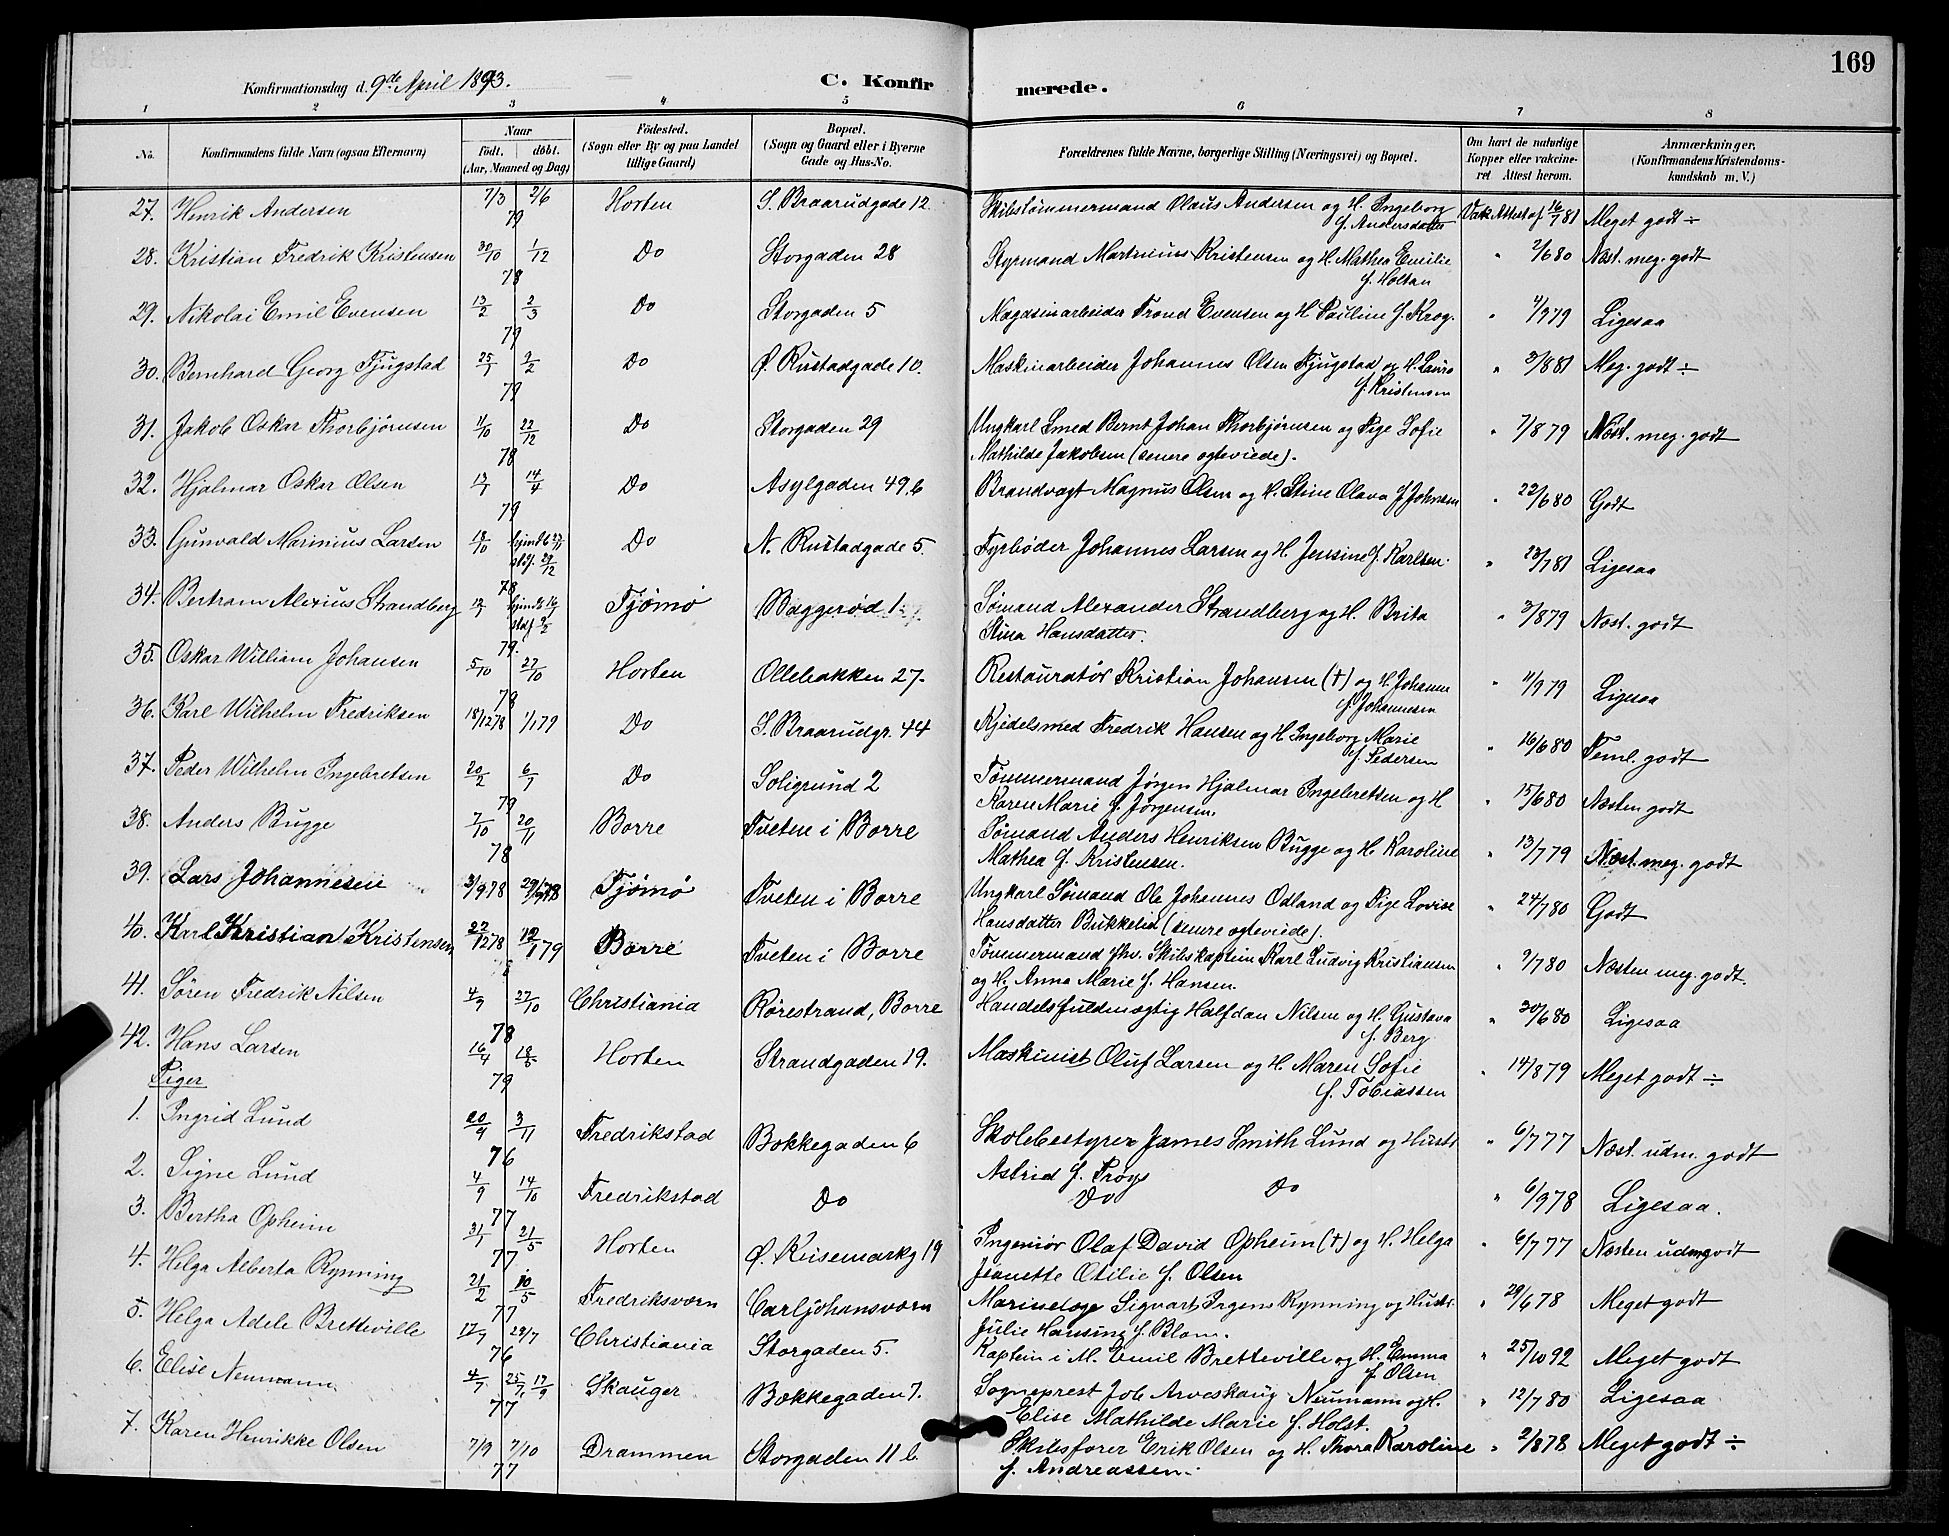 169
Konfirmationsdag d. 9de April 1893. C. Konfirmerede.
1 2 3 4 5 6 7 8
No. Konfirmandens fulde Navn (ogsaa Efternavn) Naar födt. döbt. (Aar, Maaned og Dag) Födested. (Sogn eller By og paa Landet tillige Gaard) Bopæl. (Sogn og Gaard eller i Byerne Gade og Hus-No. Forældrenes fulde Navne, borgerlige Stilling (Næringsvei) og Bopæl. Om havt de naturlige Kopper eller vakcineret Attest herom. Anmærkninger, (Konfirmandens Kristendomskundskab m. V.)
27. Henrik Andersen 7/3 2/6 79 Horten S. Braarudgade 12. Skibstømmermand Olaus Andersen og H. Ingeborg f. Andersdatter Vak. Attest af 16/7 81 Meget godt ÷
28. Kristian Fredrik Kristensen 30/10 1/12 78 Do Storgaden 28 Styrmand Martinius Kristensen og H. Mathea Emilie f. Holtan " 2/6 80 Næst. meg. godt
29. Nikolai Emil Evensen 13/2 2/3 79 Do Storgaden 5 Magasinarbeider Trond Evensen og H. Pauline f. Krog. " 4/9 79 Ligesaa
30. Bernhard Georg Fjugstad 25/1 2/2 79 Do Ø. Rustadgade 10. Maskinarbeider Johannes Olsen Fjugstad og H. Laura f. Kristensen " 3/8 81 Meg. godt ÷
31. Jakob Oskar Thorbjørnsen 11/10 22/12 78 Do Storgaden 29 Ungkarl Smed Bernt Johan Thorbjørnsen og Pige Sofie Mathilde Jakobsen (senere ægteviede). " 7/8 79 Næst. meg. godt
32. Hjalmar Oskar Olsen 13/1 14/4 79 Do Asylgaden 49,b Brandvagt Magnus Olsen og H. Stine Olava f. Johnsen " 22/6 80 Godt
33. Gunvald Marinius Larsen 18/10 hjmdb 23/11 stdf. 29/12 78 Do N. Rustadgade 5. Fyrbøder Johannes Larsen og H. Jensine f. Karlsen. " 23/7 81 Ligesaa
34. Bertram Alexius Strandberg 12/1 hjmdb 16/1 stdf 9/2 79. Tjømø Baggerød 1 Sømand Alexander Strandberg og H. Brita Stina Hansdatter. " 3/8 79 Næst. godt
35. Oskar William Johansen 5/10 27/10 78 Horten Ollebakken 27. Restauratør Kristian Johansen (†) og H. Johanne f. Johannesen " 11/9 79 Ligesaa
36. Karl Wilhelm Fredriksen 18/12 78 1/1 79 Do S. Braarudgr. 44 Kjedelsmed Fredrik Hansen og H. Ingeborg Marie f. Pedersen " 16/6 80 Teml. godt
37. Peder Wilhelm Ingebretsen 20/2 6/7 79 Do Soligrund 2 Tømmermand Jørgen Hjalmar Ingebretsen og H Karen Marie f. Jørgensen. " 15/6 80 Næsten godt
38. Anders Bugge 7/10 20/11 78 Borre Tveten i Borre Sømand Anders Henriksen Bugge og H. Karoline Mathea f. Kristensen. " 13/7 79 Næst. meg. godt
39. Lars Johannesen 3/9 78 29/12 78 Tjømø Tveten i Borre Ungkarl Sømand Ole Johannes Odland og Pige Lovise Hansdatter Bukkelid (senere ægteviede). " 24/7 80 Godt
40. Karl Kristian Kristensen 22/12 78 12/1 79 Borre Tveten i Borre Tømmermand fhv. Skibskaptein Karl Ludvig Kristiansen og H. Anna Marie f. Hansen. " 9/7 80 Næsten meg. godt.
41. Søren Fredrik Nilsen 4/9 27/10 78 Christiania Rørestrand, Borre Handelsfuldmægtig Halfdan Nilsen og H. Gustava f. Berg " 30/6 80 Ligesaa
42. Hans Larsen 16/4 18/5 79 Horten Strandgaden 19. Maskinist Oluf Larsen og H. Maren Sofie f. Tobiassen " 14/8 79 Meget godt ÷
Piger
1. Ingrid Lund 20/9 3/11 76 Fredrikstad Bokkegaden 6 Skolebestyrer James Smith Lund og Hustr Astrid f. Frøys " 6/7 77 Næst. udm. godt
2. Signe Lund 4/9 14/10 77 Fredrikstad Do Do Do " 6/9 78 Ligesaa.
3. Bertha Opheim 31/1 21/5 77 Horten Ø. Keisemarkg 19 Ingeniør Olaf David Opheim (†) og H. Helga Jeanette Otilie f. Olsen " 6/7 77 Næsten udm godt
4. Helga Alberta Rynning 21/2 10/5 77 Fredriksværn Carljohansværn Marinelæge Sigvart Irgens Rynning og Hustr. Julie Hansine f. Blom. " 29/6 78 Meget godt
5. Helga Adele Bretteville 17/7 29/7 76 Christiania Storgaden 5. Kaptein i M. Emil Bretteville og H. Emma f. Olsen " 25/10 92 Meget godt
6. Elise Neumann 4/7 25/7 17/9 77 Skauger Bokkegaden 7. Sogneprest Job Arveskoug Neumann og H. Elise Mathilde Marie f. Holst. " 12/7 80 Ligesaa
7. Karen Henrikke Olsen 7/9 7/10 77 Drammen Storgaden 11 b Skibsfører Erik Olsen og H. Thora Karoline f. Andreassen. " 2/8 78 Meget godt ÷